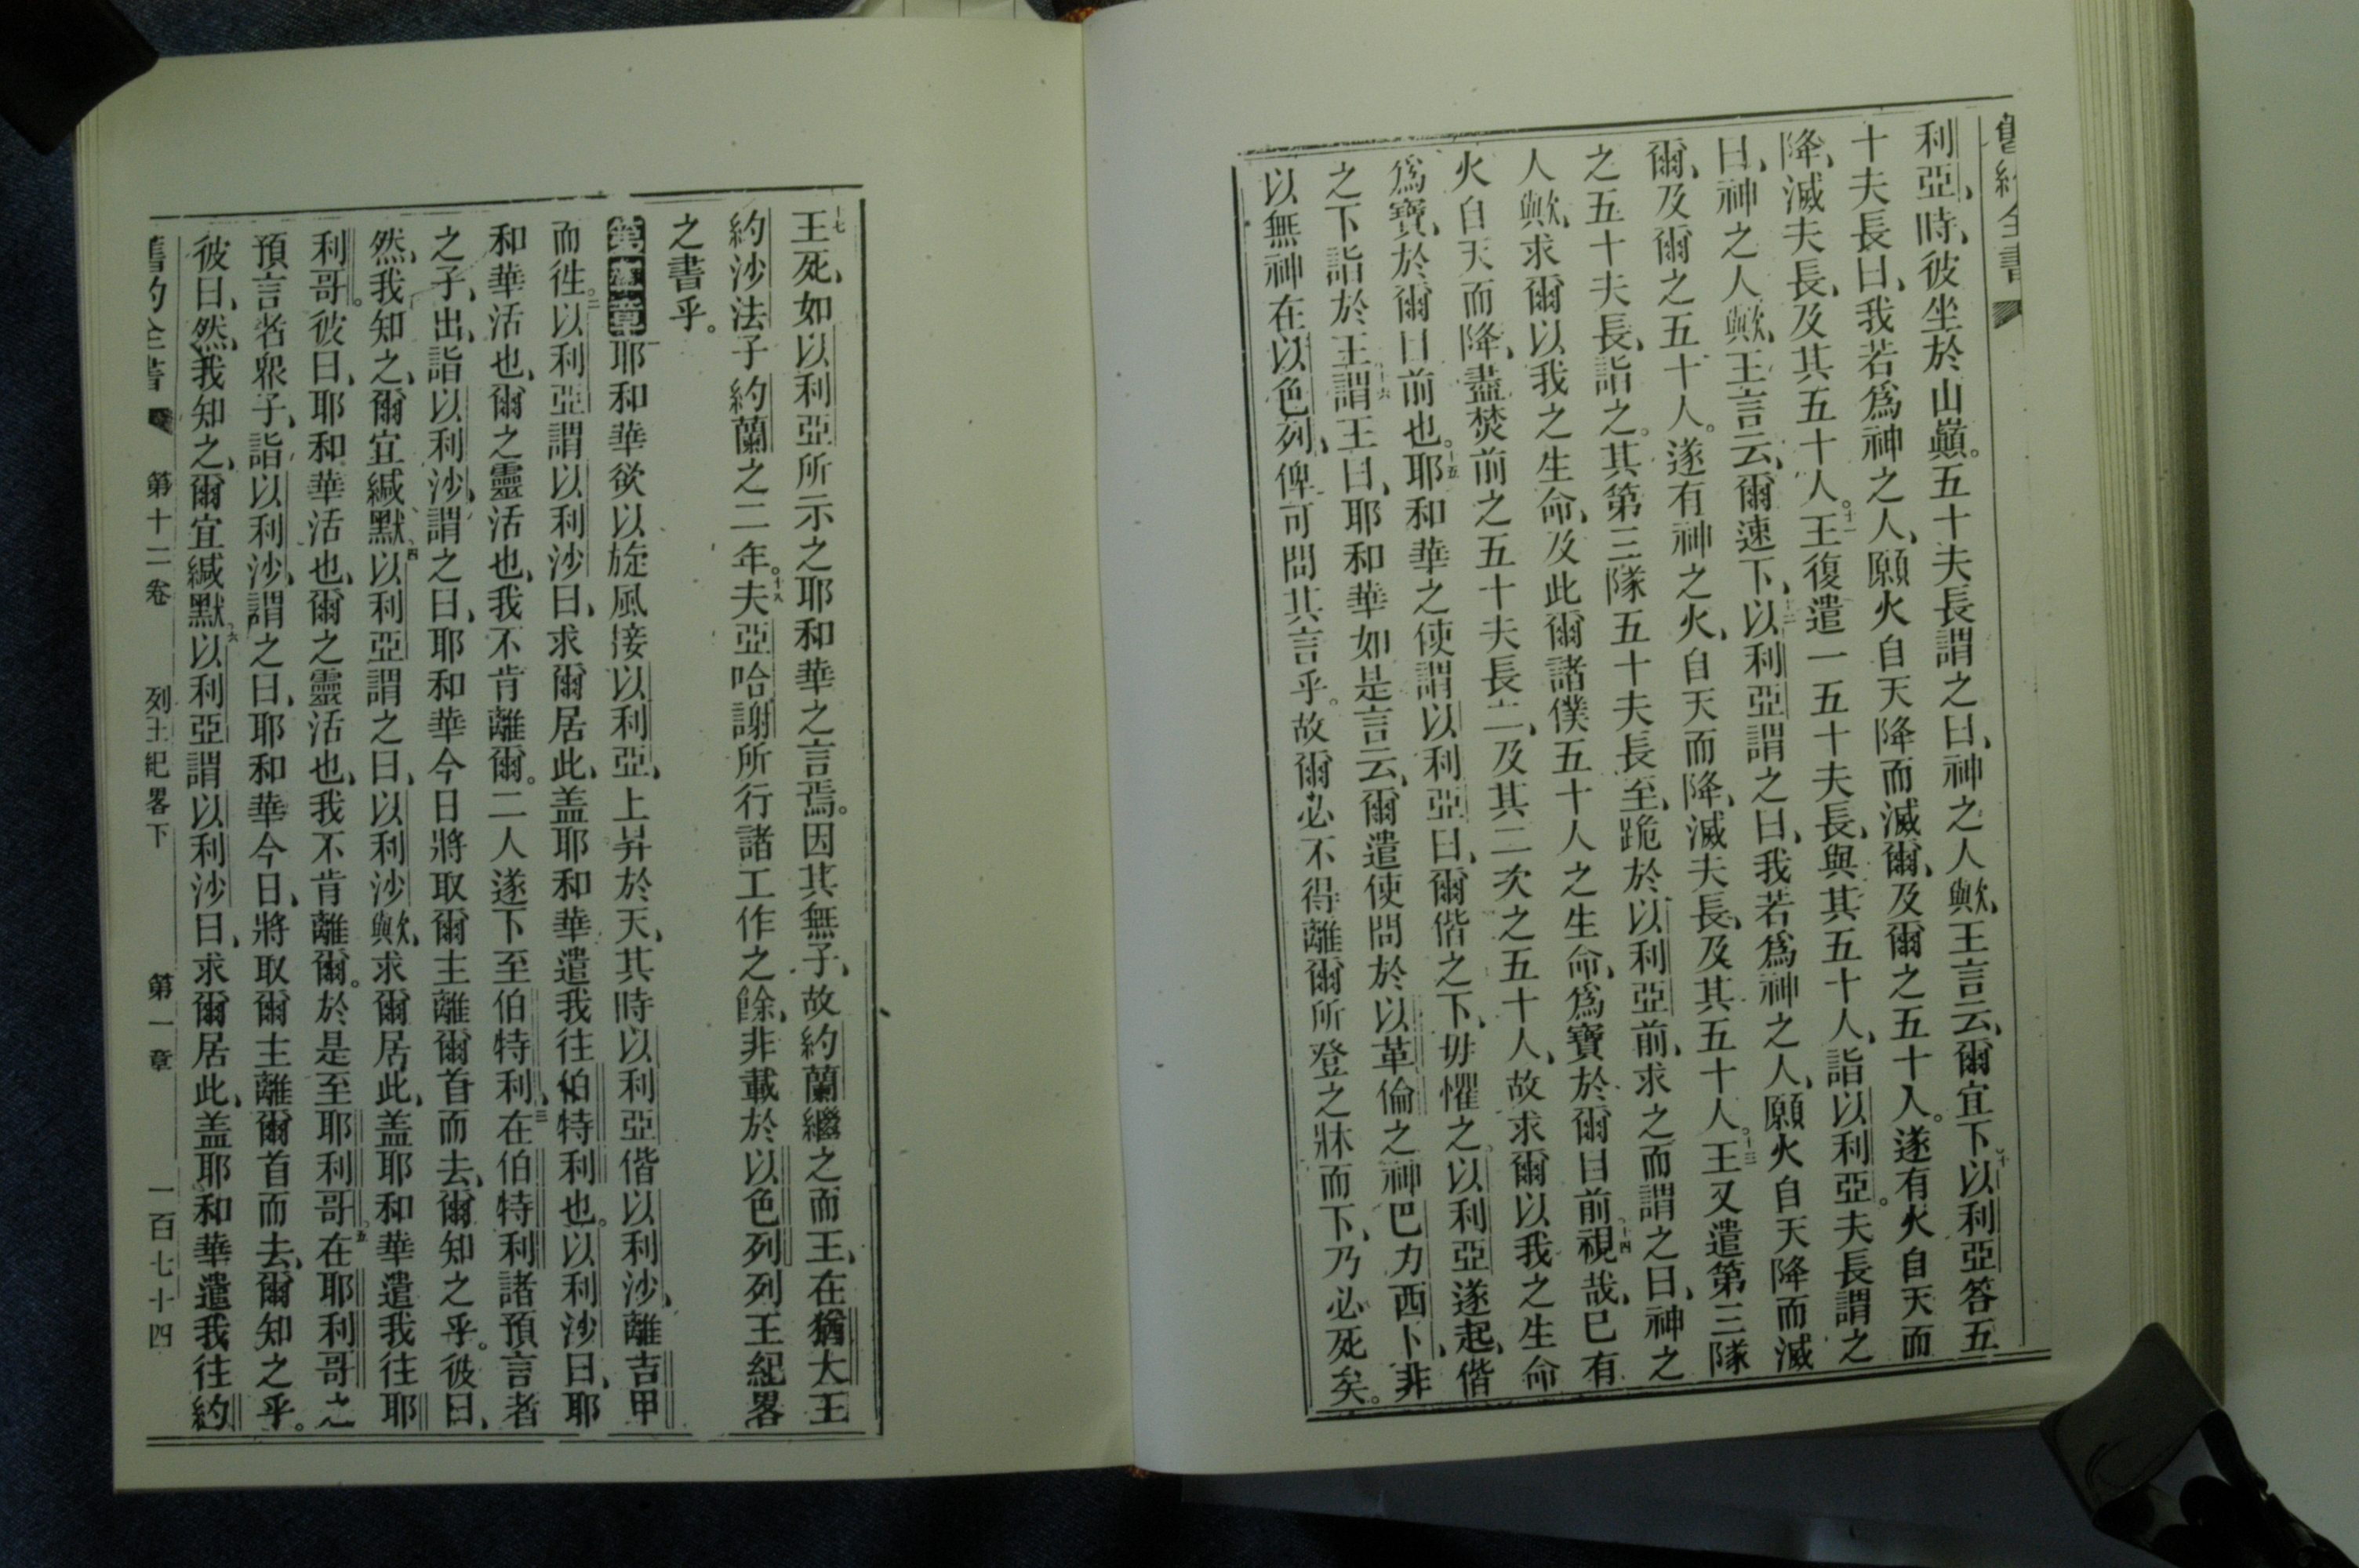 舊約全書
利亞、時、彼坐於山巔。五十夫長謂之曰、神之人歟、王言云、爾宜下、十以利亞答五
十夫長曰、我若爲神之人、願火自天降而滅爾、及爾之五十人。遂有火自天而
降、滅夫長、及其五十人。十一王復遣一五十夫長、與其五十人、詣以利亞。夫長謂之
曰、神之人歟、王言云、爾速下、十二以利亞謂之曰、我若爲神之人、願火自天降而滅
爾、及爾之五十人。遂有神之火、自天而降、滅夫長、及其五十人。十三王又遣第三隊
之五十夫長、詣之。其第三隊五十夫長至、跪於以利亞前、求之而謂之曰、神之
人歟、求爾以我之生命、及此爾諸僕五十人之生命、爲寶於爾目前、十四視哉、已有
火自天而降、盡焚前之五十夫長二、及其二次之五十人、故求爾以我之生命
爲寶、於爾目前也。十五耶和華之使謂以利亞曰、爾偕之下、毋懼之。以利亞遂起、偕
之下詣於王、十六謂王曰、耶和華如是言云、爾遣使問於以革倫之神巴力西卜、非
以無神在以色列、俾可問其言乎。故爾必不得離爾所登之牀而下、乃必死矣。
十七王死、如以利亞所示之耶和華之言焉。因其無子、故約蘭繼之而王、在猶大王
約沙法子約蘭之二年。十八夫亞哈謝所行諸工作之餘、非載於以色列列王紀畧
之書乎。
第二章耶和華欲以旋風接以利亞、上昇於天、其時以利亞偕以利沙、離吉甲
而徃。二以利亞謂以利沙曰、求爾居此、盖耶和華遣我往伯特利也。以利沙曰、耶
和華活也、爾之靈活也、我不肯離爾。二人遂下至伯特利、三在伯特利諸預言者
之子、出、詣以利沙、謂之曰、耶和華今日將取爾主離爾首而去、爾知之乎。彼曰、
然、我知之、爾宜緘默、四以利亞謂之曰、以利沙歟、求爾居此、盖耶和華遣我往耶
利哥。彼曰、耶和華活也、爾之靈活也、我不肯離爾。於是至耶利哥。五在耶利哥之
預言者眾子、詣以利沙、謂之曰、耶和華今日、將取爾主離爾首而去、爾知之乎。
彼曰、然、我知之、爾宜緘默、六以利亞謂以利沙曰、求爾居此、盖耶和華遣我往約
舊約全書 第十二卷 列王紀畧下 第一章 一百七十四